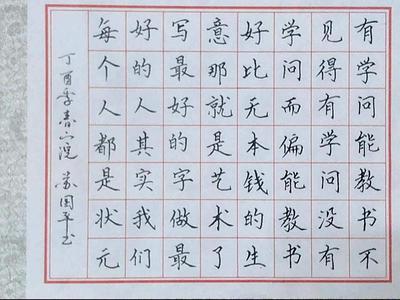 有学问能教书不
见得有学问没有
学问而偏能教书
好比无本钱的生
意那就是艺术了
写最好的字做最
好的人其实我们
每个人都是状元
丁酉季春下浣 苏国平书